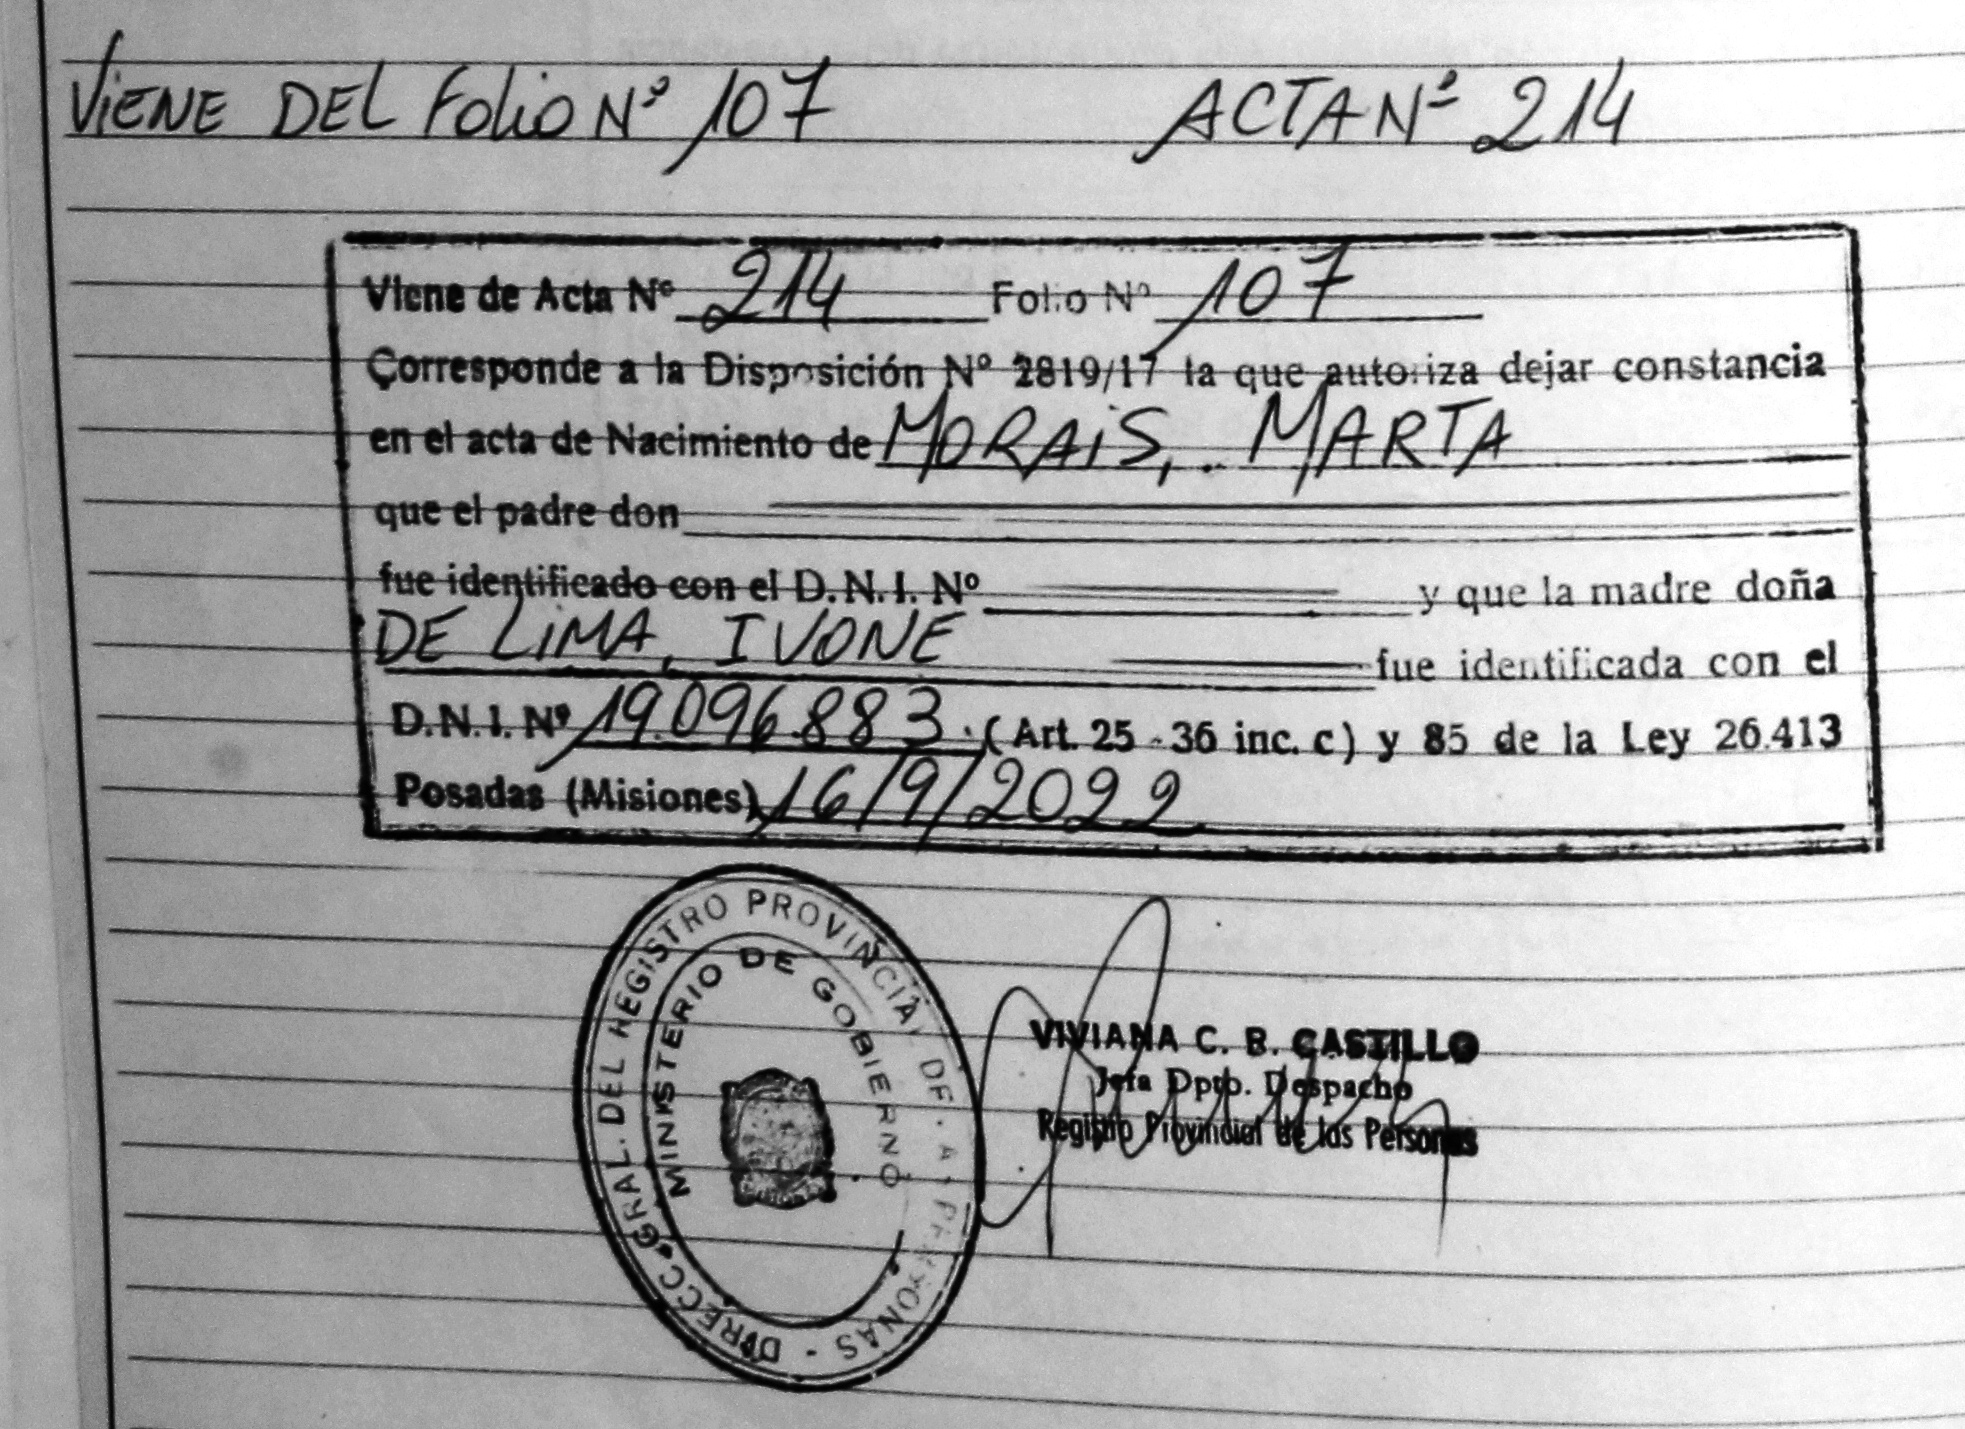 VIENE DEL FOLIO Nº 107 ACTA Nº 214
Viene de Acta Nº 214 Folio Nº 107
Corresponde a la Disposición Nº 2819/17 la que autoriza dejar constancia
en el acta de Nacimiento de MORAIS, MARTA
que el padre don
fue identificado con el D.N.I. Nº y que la madre doña
DE LIMA, IVONE fue identificada con el
D.N.I. Nº 19.096.883. (Art. 25 - 36 inc. c) y 85 de la Ley 26.413
Posadas (Misiones) 16/9/2022
DIRECC. GRAL. DEL REGISTRO PROVINCIAL DE LAS PERSONAS -
MINISTERIO DE GOBIERNO
VIVIANA C. B. CASTILLO
Jefa Dpto. Despacho
Registro Provincial de las Personas